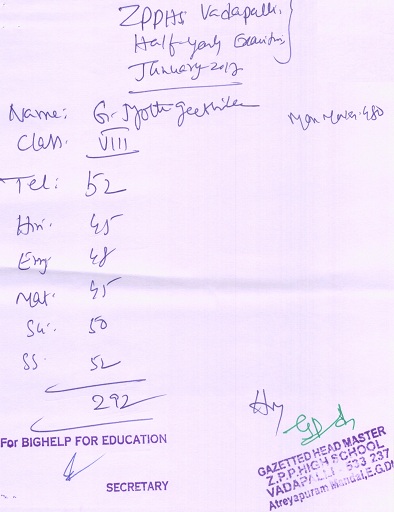 ZPPHS Vadapalli.
Half-yearly Examination
January-2017
Name: G. Jyothi geethika
Max Marks. 480
Class. VIII
Tel: 52
Hin. 45
Eng. 48
Mat. 45
Sci. 50
SS. 52
292
For BIGHELP FOR EDUCATION
SECRETARY
GAZETTED HEAD MASTER
Z.P.P.HIGH SCHOOL
VADAPALLI - 533 237
Atreyapuram Mandal, E.G.Dt